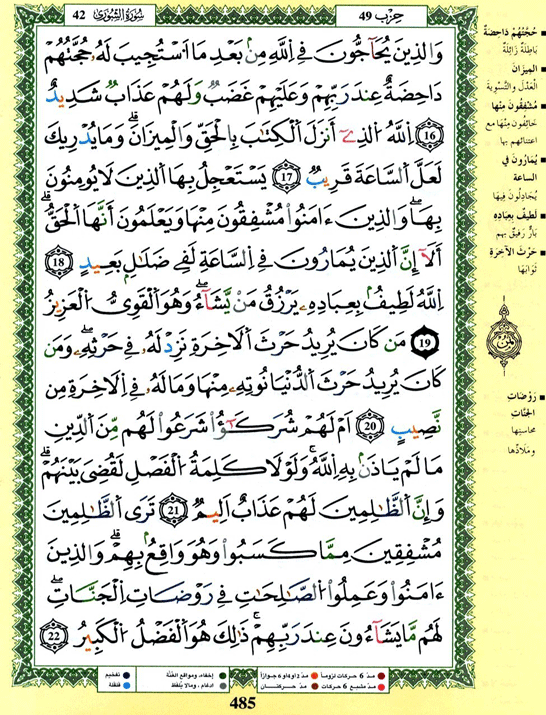 حِزْب 49
سُورَةُ الشُّورَىٰ 42
وَالذِينَ يُحَآجُّونَ فِي اِللَّهِ مِنۢ بَعْدِ مَا اَسْتُجِيبَ لَهُۥ حُجَّتُهُمْ
دَاحِضَةٌ عِندَ رَبِّهِمْ وَعَلَيْهِمْ غَضَبٌ وَلَهُمْ عَذَابٌ شَدِيدٌ
16 اِ۬للَّهُ اُ۬لذِےٓ أَنزَلَ اَ۬لْكِتَٰبَ بِالْحَقِّ وَالْمِيزَانَۖ وَمَا يُدْرِيكَ
لَعَلَّ اَ۬لسَّاعَةَ قَرِيبٌ 17 يَسْتَعْجِلُ بِهَا اَ۬لذِينَ لَا يُومِنُونَ
بِهَاۖ وَالذِينَ ءَامَنُواْ مُشْفِقُونَ مِنْهَا وَيَعْلَمُونَ أَنَّهَا اَ۬لْحَقُّۖ
أَلَآ إِنَّ اَ۬لذِينَ يُمَارُونَ فِي اِ۬لسَّاعَةِ لَفِي ضَلَٰلِۢ بَعِيدٍ 18
اِ۬للَّهُ لَطِيفُۢ بِعِبَادِهِۦ يَرْزُقُ مَنْ يَّشَآءُۖ وَهُوَ اَ۬لْقَوِيُّ اُ۬لْعَزِيزُ
19 مَن كَانَ يُرِيدُ حَرْثَ اَ۬لَاخِرَةِ نَزِدْ لَهُۥ فِي حَرْثِهِۦۖ وَمَن
كَانَ يُرِيدُ حَرْثَ اَ۬لدُّنْيَا نُوتِهِۦ مِنْهَا وَمَا لَهُۥ فِي اِ۬لَاخِرَةِ مِن
نَّصِيبٍ 20 اَمْ لَهُمْ شُرَكَٰٓؤُاْ شَرَعُواْ لَهُم مِّنَ اَ۬لدِّينِ
مَا لَمْ يَاذَنۢ بِهِ اِ۬للَّهُۖ وَلَوْلَا كَلِمَةُ اُ۬لْفَصْلِ لَقُضِيَ بَيْنَهُمْۖ
وَإِنَّ اَ۬لظَّٰلِمِينَ لَهُمْ عَذَابٌ اَلِيمٌ 21 تَرَى اَ۬لظَّٰلِمِينَ
مُشْفِقِينَ مِمَّا كَسَبُواْ وَهُوَ وَاقِعُۢ بِهِمْۖ وَالذِينَ
ءَامَنُواْ وَعَمِلُواْ اُ۬لصَّٰلِحَٰتِ فِي رَوْضَاتِ اِ۬لْجَنَّاتِۖ
لَهُم مَّا يَشَآءُونَ عِندَ رَبِّهِمْۖ ذَٰلِكَ هُوَ اَ۬لْفَضْلُ اُ۬لْكَبِيرُ 22
حُجَّتُهُمْ دَاحِضَةٌ
بَاطِلَةٌ زَائِلَةٌ
الْمِيزَانَ
العَدْلَ والتَّسْوِيَةَ
مُشْفِقُونَ مِنْهَا
خَائِفُونَ مِنْهَا مع
اعتنائهم بها
يُمَارُونَ فِي
الساعة
يُجَادِلُونَ فِيهَا
لَطِيفٌ بِعِبَادِهِ
بَارٌّ رَفِيقٌ بِهِم
حَرْثَ الآخِرَةِ
ثَوَابَهَا
ثمن
رَوْضَاتِ
الجَنَّاتِ
محاسنِها
ومَلاذِّها
مدّ 6 حركات لزوماً
مدّ 2 أو 4 أو 6 جوازاً
إخفاء، ومواقع الغُنَّة
تفخيم
مدّ مشبع 6 حركات
مدّ حركتان
ادغام، وما لا يُلفظ
قلقلة
485